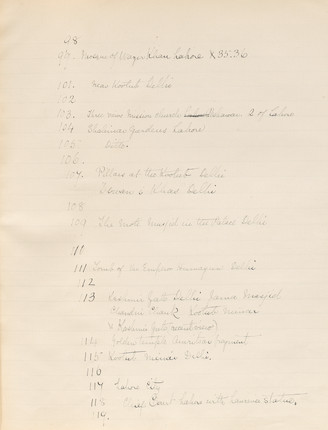 98
99. Mosque of Wazir Khan Lahore & 35.36
101. Near Kootub Delhi
102
103. Three more Mission church 2 of Lahore
104 Shalimar Gardens Lahore
105 Ditto
106.
107. Pillars at the Kootub Delhi
Dewan i Khas Delhi
108
109 The Moti Musjid in the Palace Delhi
110
111 Tomb of the Emperor Delhi
112
113 Kashmir Gate Delhi Jumma Musjid
Chandni Kootub Minar
& Kashmir gate
114 Golden Temple Amritsar fragment
115 Kootub Minar Delhi.
116
117 Lahore City
118 Chief Court Lahore with Lawrence statue.
119.